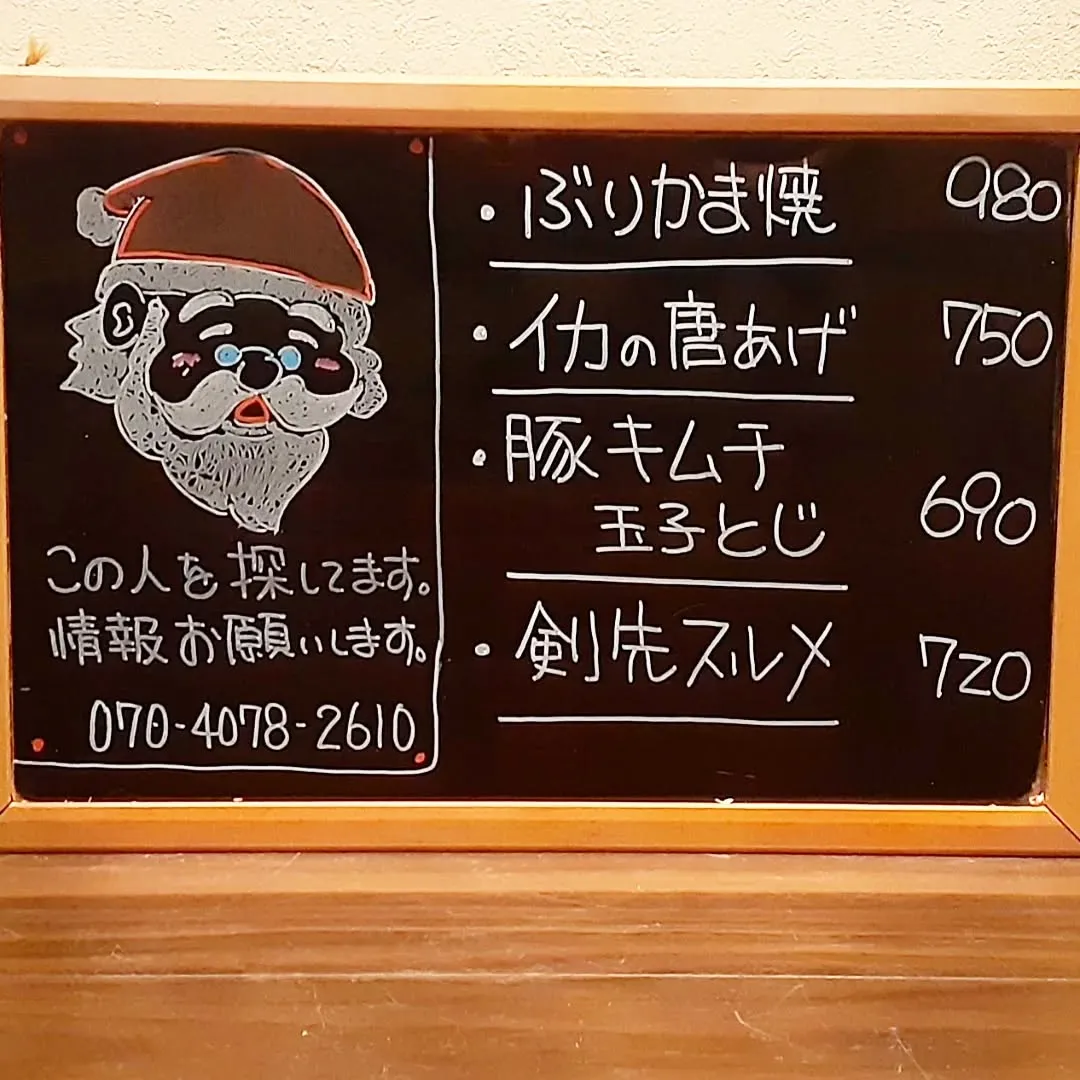 この人を探してます。
情報お願いします。
070-4078-2610
・ぶりかま焼 980
・イカの唐あげ 750
・豚キムチ
玉子とじ 690
・剣先スルメ 720